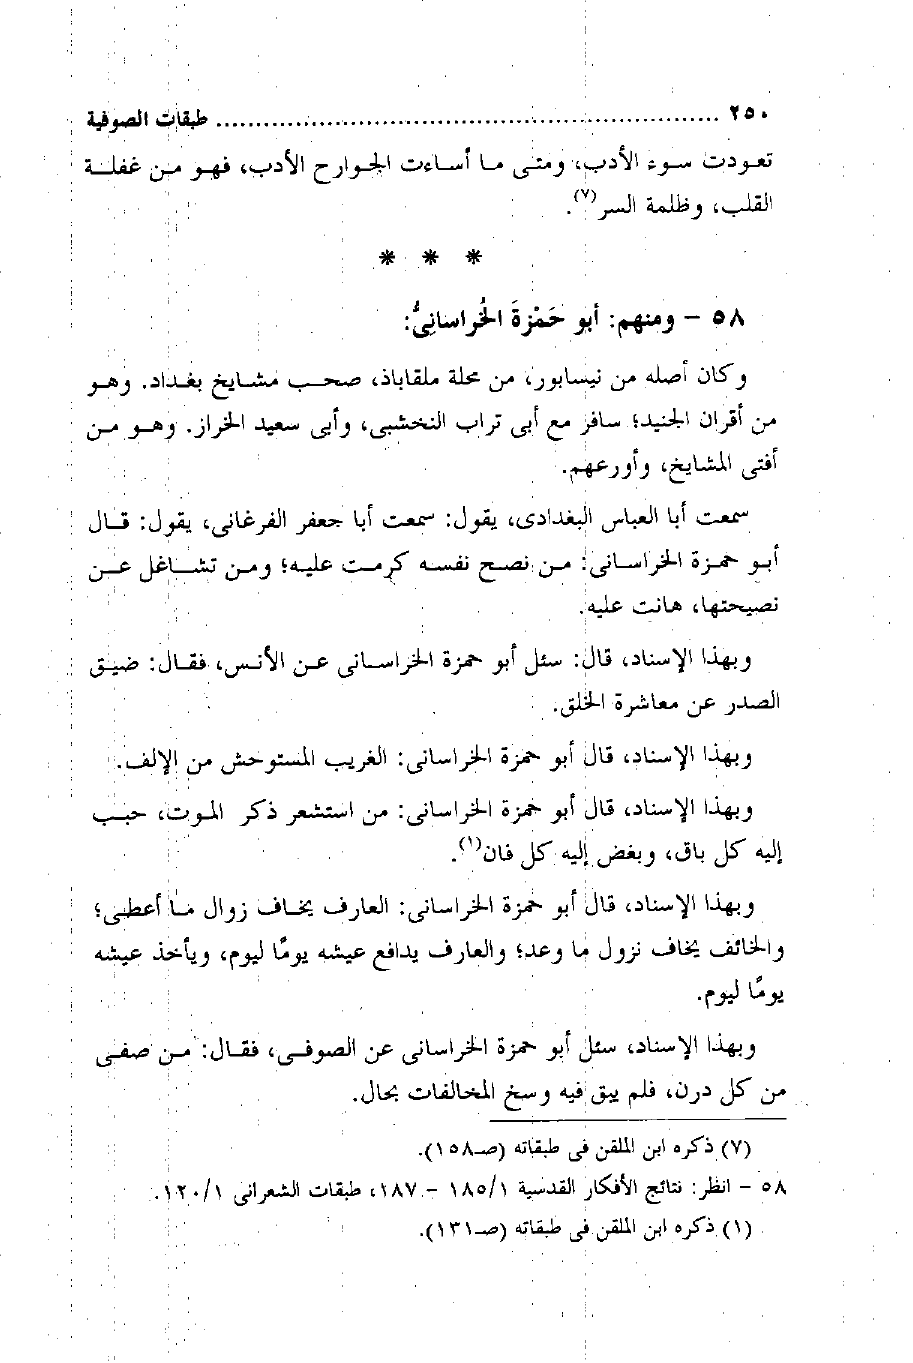 ٢٥٠ ................................................................ طبقات الصوفية
تعودت سوء الأدب، ومتى ما أساءت الجوارح الأدب، فهو من غفلة
القلب، وظلمة السر(٧).
* * *
٥٨ – ومنهم: أبو حَمْزةَ الخُراسانِىُّ:
وكان أصله من نيسابور، من محلة ملقاباذ، صحب مشايخ بغداد. وهو
من أقران الجنيد؛ سافر مع أبى تراب النخشبى، وأبى سعيد الخراز. وهو من
أفتى المشايخ، وأورعهم.
سمعت أبا العباس البغدادى، يقول: سمعت أبا جعفر الفرغانى، يقول: قال
أبو حمزة الخراسانى: من نصح نفسه كرمت عليه؛ ومن تشاغل عن
نصيحتها، هانت عليه.
وبهذا الإسناد، قال: سئل أبو حمزة الخراسانى عن الأنس، فقال: ضيق
الصدر عن معاشرة الخلق.
وبهذا الإسناد، قال أبو حمزة الخراسانى: الغريب المستوحش من الإلف.
وبهذا الإسناد، قال أبو حمزة الخراسانى: من استشعر ذكر الموت، حبب
إليه كل باق، وبغض إليه كل فان(١).
وبهذا الإسناد، قال أبو حمزة الخراسانى: العارف يخاف زوال ما أعطى؛
والخائف يخاف نزول ما وعد؛ والعارف يدافع عيشه يومًا ليوم، ويأخذ عيشه
يومًا ليوم.
وبهذا الإسناد، سئل أبو حمزة الخراسانى عن الصوفى، فقال: من صفى
من كل درن، فلم يبق فيه وسخ المخالفات بحال.
(٧) ذكره ابن الملقن فى طبقاته (صـ١٥٨).
٥٨ – انظر: نتائج الأفكار القدسية ١/١٨٥ – ١٨٧، طبقات الشعرانى ١/١٢٠.
(١) ذكره ابن الملقن فى طبقاته (صـ١٣١).